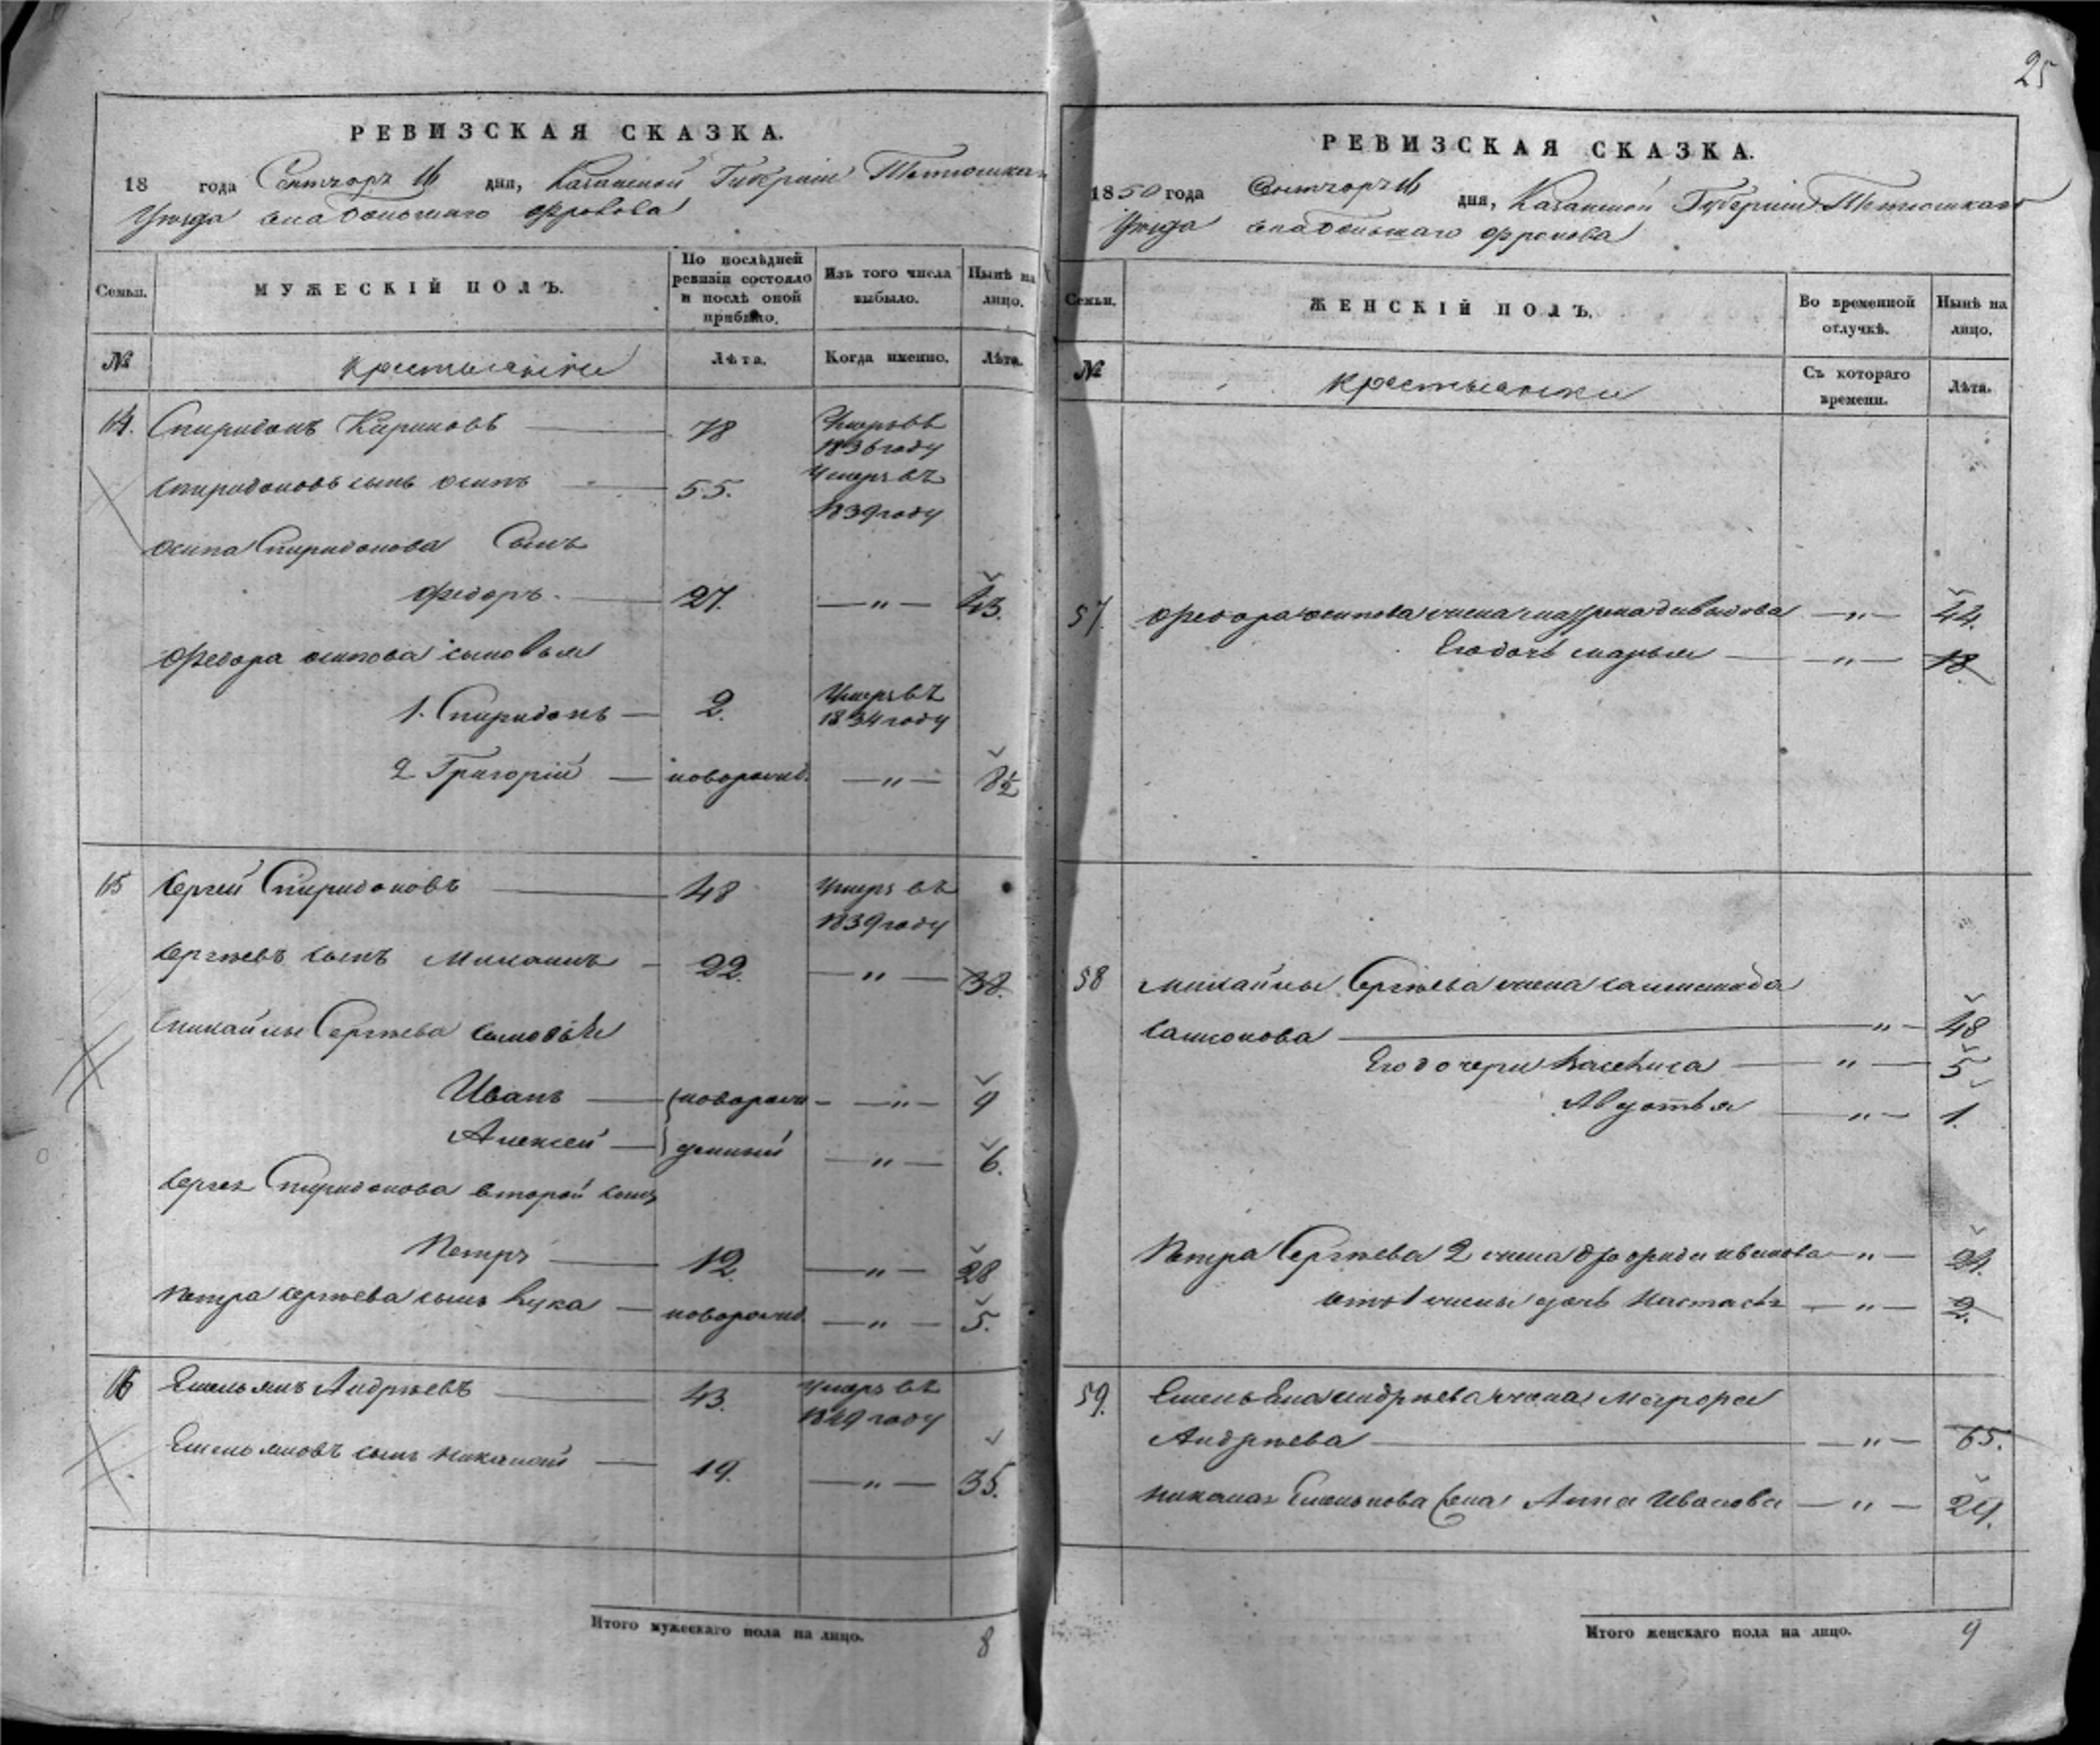 25
РЕВИЗСКАЯ СКАЗКА.
18 года Сентября 16 дня, Казанской Губернии Тетюшскаго
Уезда села Большаго Фролова
Семьи.
МУЖЕСКІЙ ПОЛЪ.
По послѣдней ревизіи состояло и послѣ оной прибыло.
Изъ того числа выбыло.
Нынѣ на лицо.
№
крестьяне
Лѣта.
Когда именно.
Лѣта.
14. Спиридонъ Кириловъ 78 Умеръ въ
1836 году
Спиридоновъ сынъ Осипъ 55. Умеръ въ
1839 году
Осипа Спиридонова Сынъ
Федоръ 27. — " — 43.
Федора Осипова сыновья
1. Спиридонъ — 2. Умеръ въ
1834 году
2 Григорій — новорожд. — " — 8½
15 Сергей Спиридоновъ 48 Умеръ въ
1839 году
Сергѣевъ сынъ Михаилъ 22. — " — 38.
Михайлы Сергѣева сыновья
Иванъ — новорож — " — 9
Алексей — денный — " — 6.
Сергея Спиридонова второй сынъ
Петръ 12. — " — 28
Петра Сергѣева сынъ Лука — новорожд. — " — 5.
16 Емельянъ Андрѣевъ 43. Умеръ въ
1849 году
Емельяновъ сынъ Николай 19. — " — 35.
Итого мужескаго пола на лицо. 8
РЕВИЗСКАЯ СКАЗКА.
1850 года Сентября 16 дня, Казанской Губерніи Тетюшскаго
Уезда села Большаго Фролова
Семьи.
ЖЕНСКІЙ ПОЛЪ.
Во временной отлучкѣ.
Нынѣ на лицо.
№
крестьянки
Съ котораго времени.
Лѣта.
57. Федора Осипова жена Матрена Давыдова — " — 44.
Его дочь Марья — " — 18.
58 Михайлы Сергѣева жена
Самсонова — " — 48
Его дочери Василиса — " — 5
Авдотья — " — 1.
Петра Сергѣева 2 жена Иванова — " — 24.
от 1 жены дочь Настасья — " — 2.
59. Емельяна Андрѣева жена Марфа
Андрѣева — " — 65.
Николая Емельянова жена Анна Иванова — " — 29.
Итого женскаго пола на лицо. 9